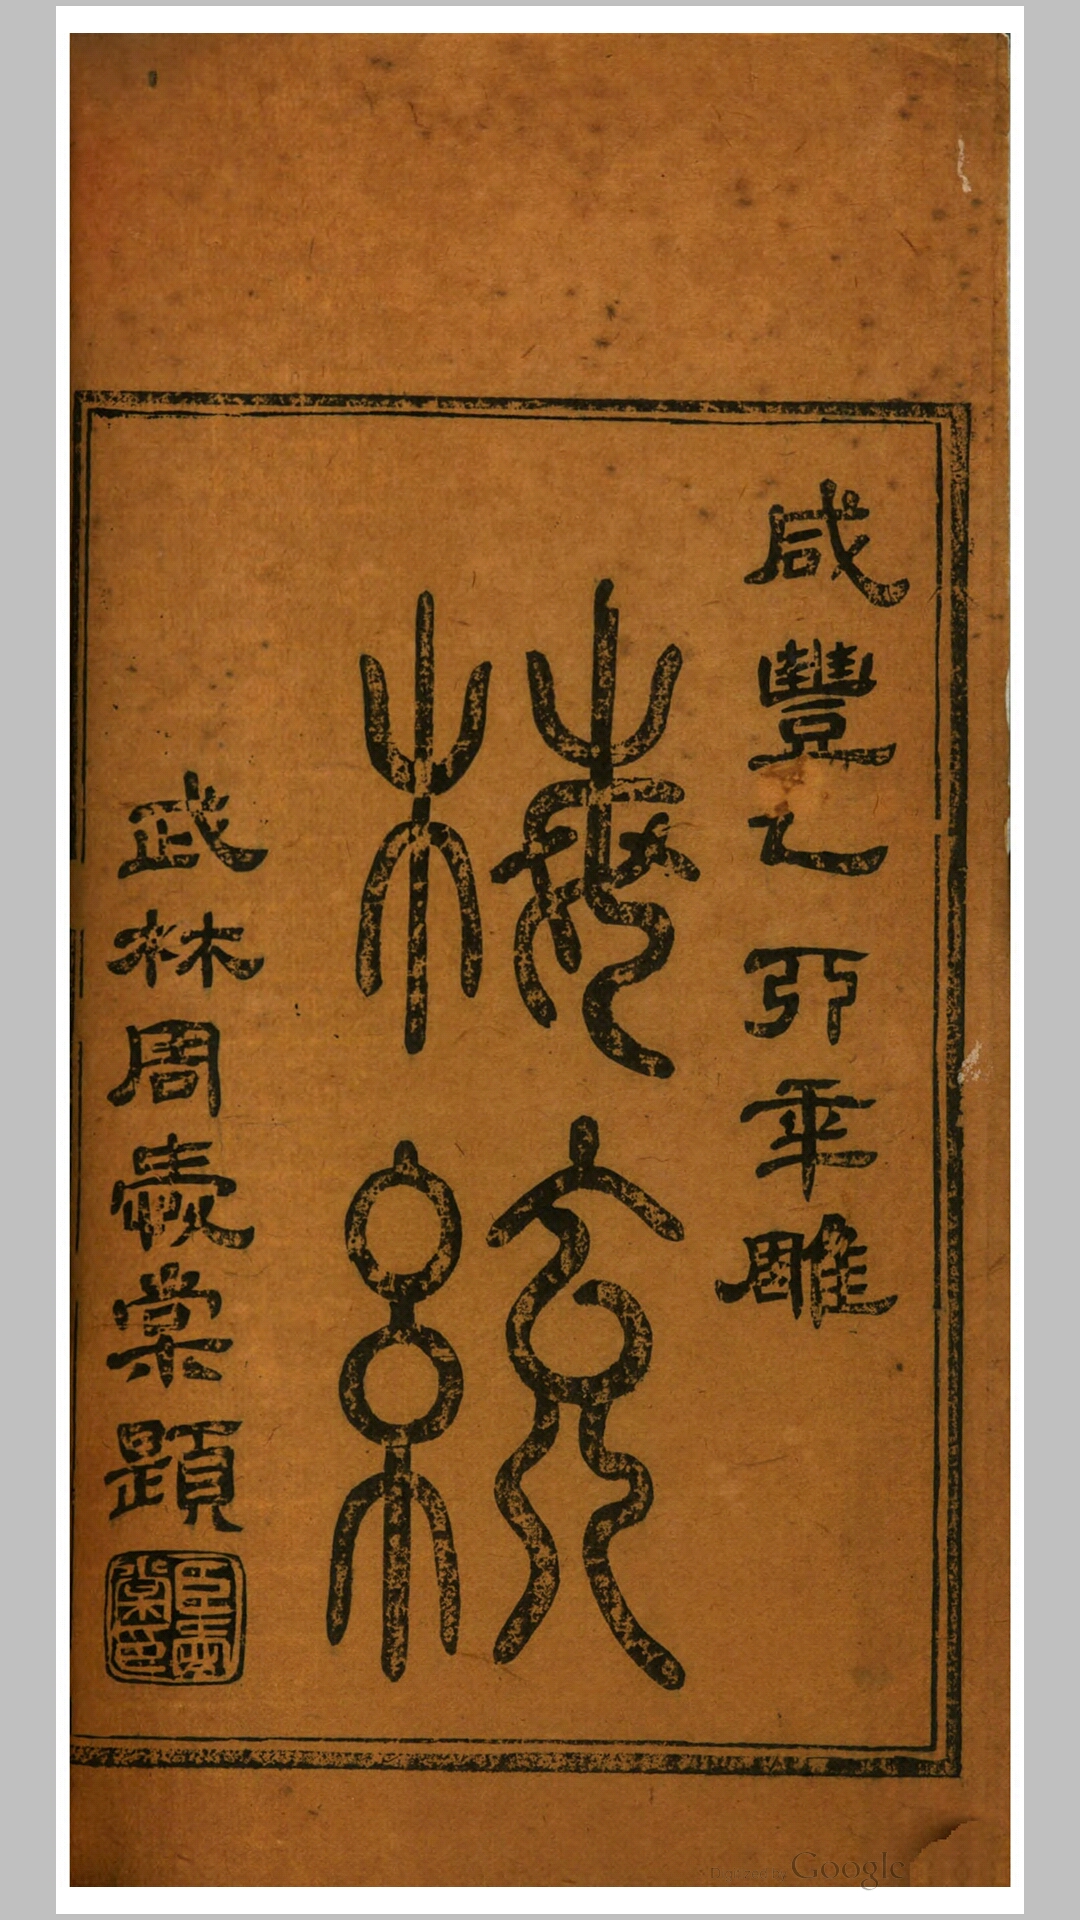 咸豐乙卯年雕
梅統
武林周壽棠題
Digitized by Google